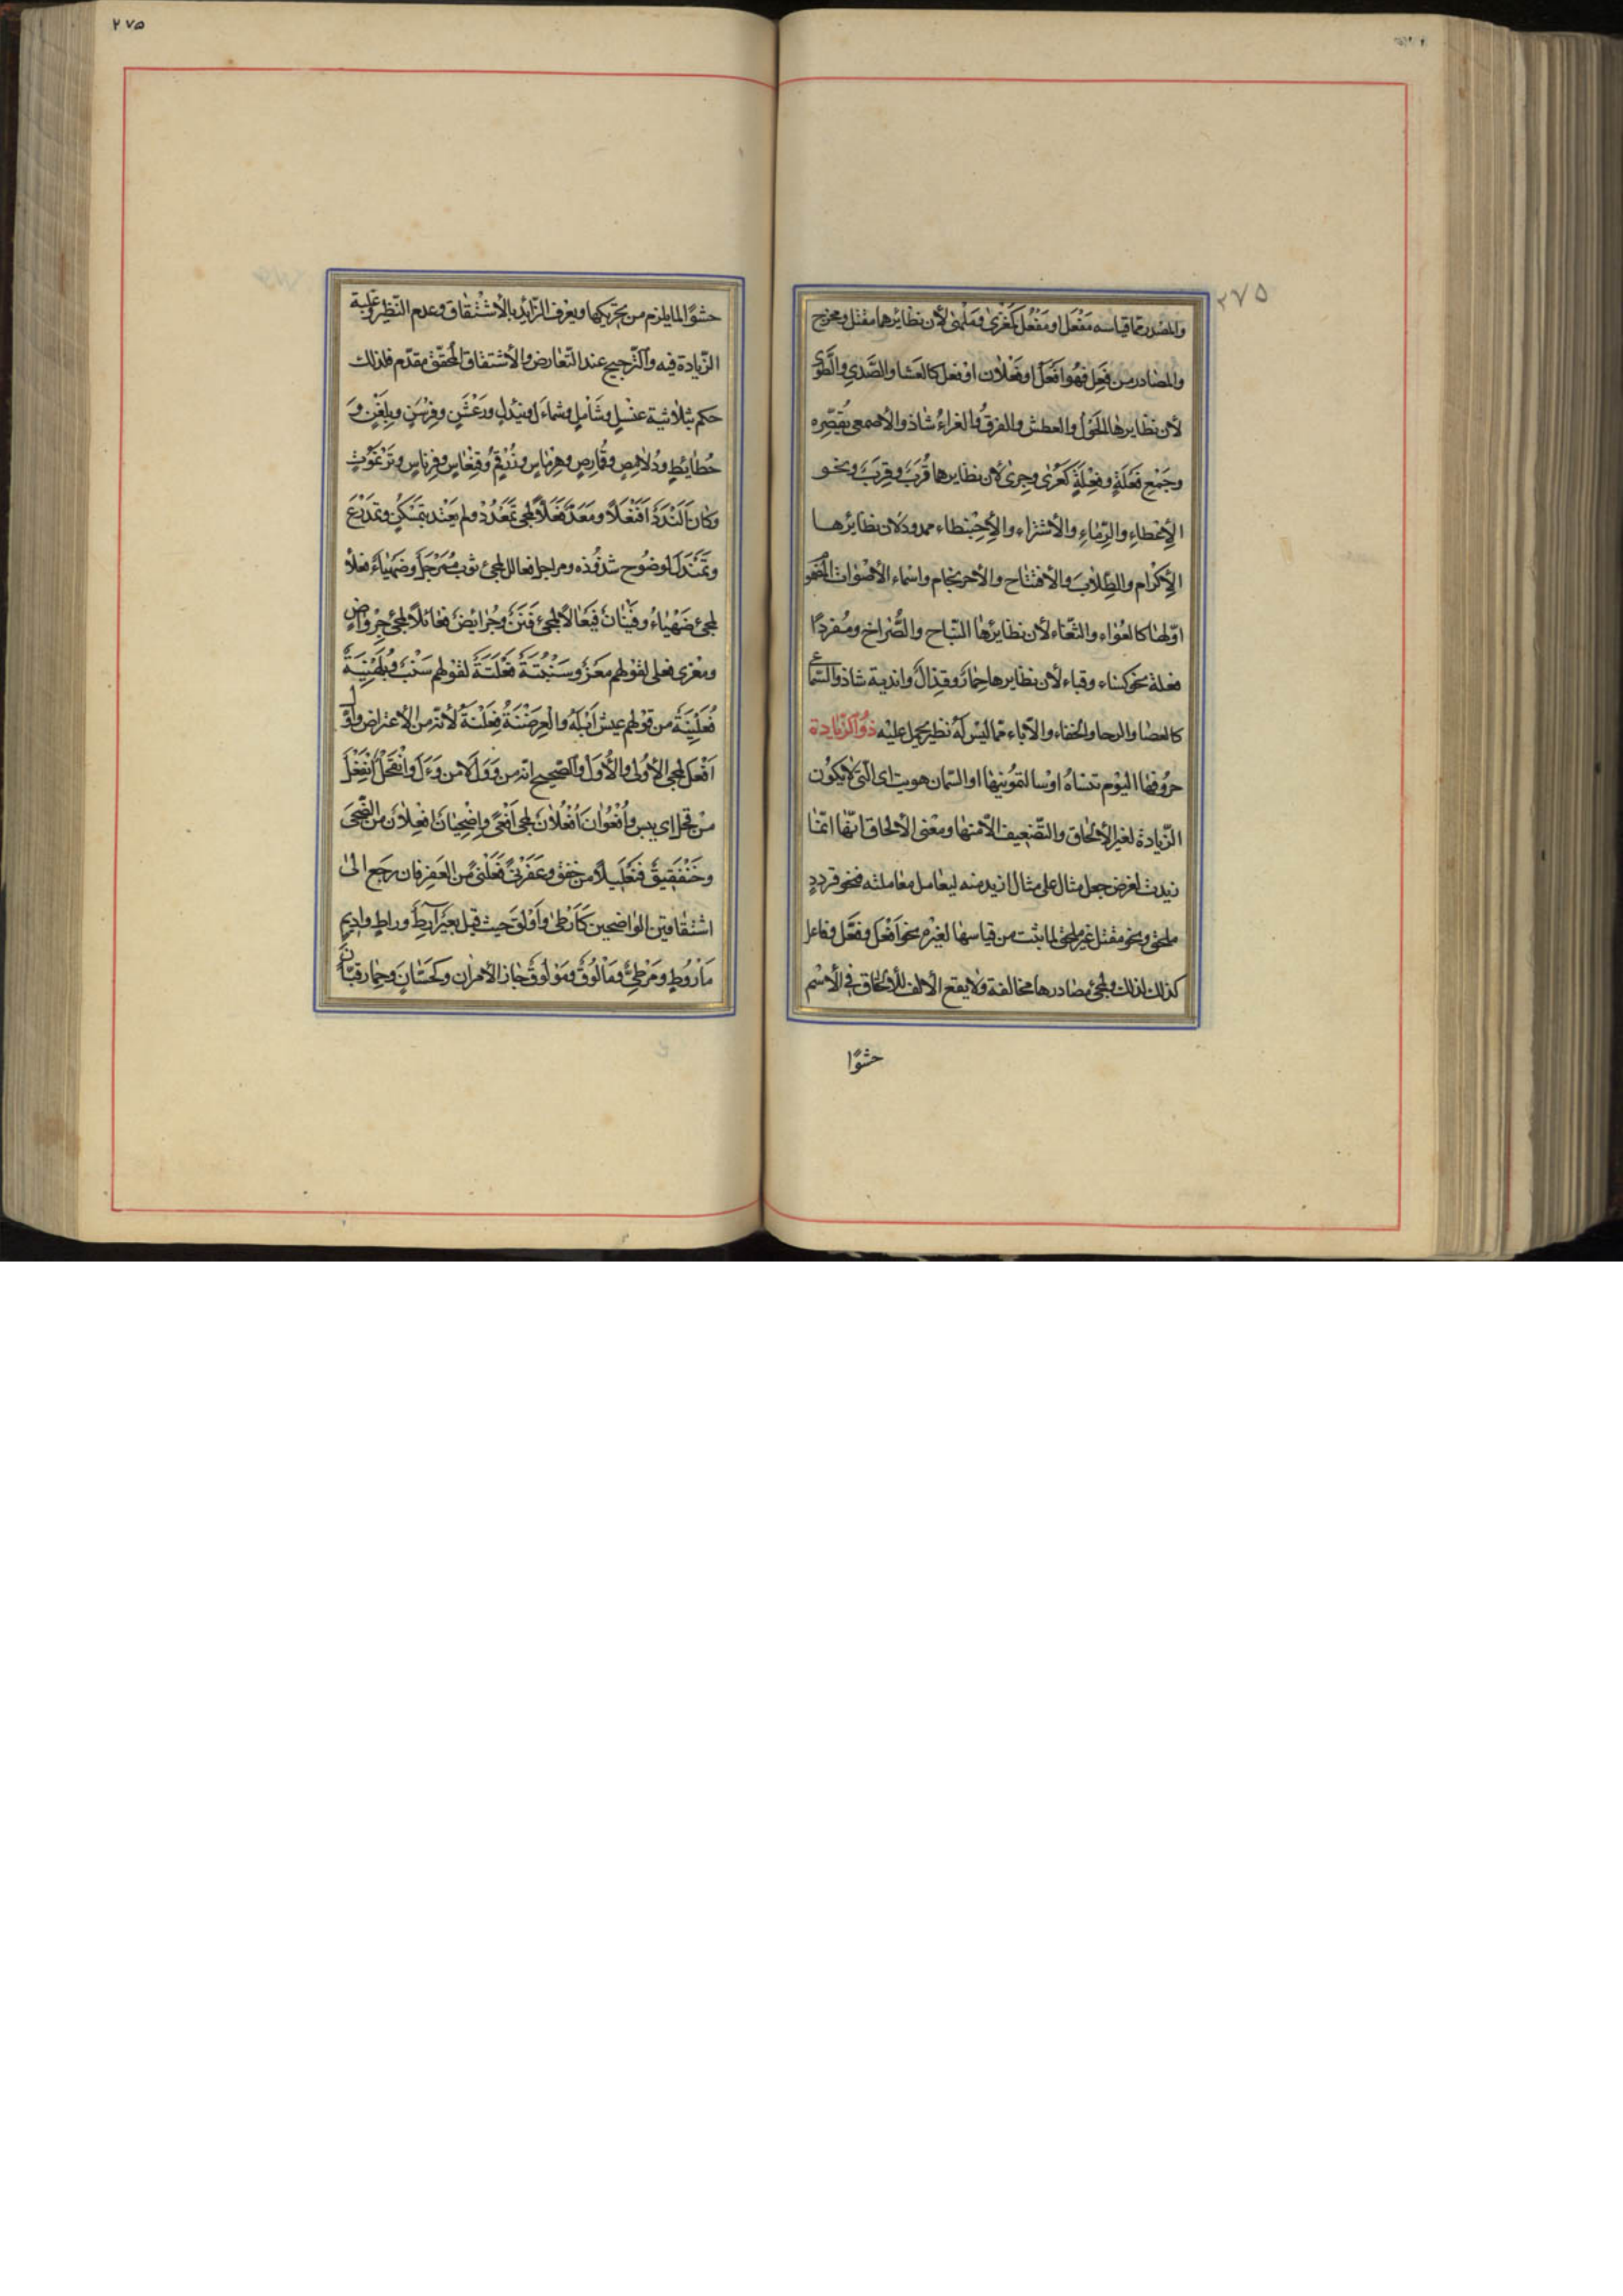 ٢٧٥
والمصدر مما قياسه مَفْعَل او مُفْعَل كَمَغْزىً ومَلْهىً لأن نظائرهما مقتل ومخرج
والمصادر من فَعِلَ فَهُوَ اَفْعَلُ او فَعْلان او فَعِل كالعَشا والصَّدى والطَّوى
لأن نظايرها الحَوَل والعطش والفرقُ والغراءُ شاذ والاصمعى يُقَصِّره
وجَمْعِ فُعْلَةٍ وفِعْلَةٍ كَعُرًى وجِزىً لأن نظايرهما قُرَبٌ وقِرَبٌ ونحو
الإعْطاءِ والرِّماءِ والأشتراء والإحْبنطاء ممدود لان نظائرها
الإكْرام والطِّلابُ والأفتتاح والأحرنجام واسماء الأصْوات المضمو
اوّلها كالعُواء والثُّغاء لأن نظايرُها النّباح والصُّراخ ومُفردًا
فعلة نحو كساء وقباء لأن نظايرها حِمارٌ وقذالٌ وانديةٌ شاذ والسّماع
كالعصا والرحا والخفاء والآباء ممّا ليْسَ لَهُ نظير يحمل عليْه ذُو الزّيادة
حرُوفها اليَوْم تنساهُ او سالتمُونيها او السّمان هويت اى الّتى لا يكون
الزّيادة لغير الإلحاق والتّضعيف الّا منها ومعْنى الألحاق انّها انّما
زيدت لغرض جعل مثال على مثال ازيد منه ليعامل معاملته فنحو قردد
ملحق ونحو مقتل غير ملحق لما ثبت من قياسها لغيْره نحو اَفْعَلَ وفَعَّل وفاعل
كذلك لذلك ولمجئ مصادرها مخالفة ولا يقع الألف للألحاق فى الأسْم
حشوًا
٢٧٥
حشوًا لما يلزم من تحريكها ويعْرف الزّائد بالأشتقاق وعدم النّظير وغلبة
الزّيادة فيه والتّرجيح عند التّعارض والأشتقاق المحقّق مقدّم فلذلك
حكم بثلاثية عنْسلٍ وشَأْملٍ وشمأَل ونِئْدِلٍ ورَعْشَنٍ وفِرْسَنٍ وبِلَغْنٍ و
حُطائِطٍ ودُلامِصٍ وقُمارصٍ وهِرْماسٍ وزُرْقُمٍ وقِنْعاسٍ وفِرْناسٍ وتَرْنَمُوتٍ
وكان اَلَنْدَدٌ اَفَنْعَلاً ومَعَدٌّ فَعَلاًّ لمجئ تَمَعْدَدُ ولم يعْتد بتَمَسْكَن وتمَدْرَعَ
وتَمَنْدَل لوضُوح شذوُذه ومراجل فعالل لمجئ ثوب مُمَرْجَل وضَهْيَاء فعلأ
لمجئ ضَهْياءُ وفَيْنانٌ فَيْعالاً لمجئ فَنَنٌ وجُرَائِضٌ فعَائلاً لمجئ جِرْواض
ومعْزى فعلى لقولهم معَزٌ وسَنْبَتةٌ فَعْلَتَةٌ لقولهم سَنْبٌ وبُلَهْنِيَةٌ
فُعَلْنِيَةٌ من قوْلهم عيش اَبْلَهُ والعِرَضْنَةُ فِعَلْنَةٌ لأنّه من الأعتراض واَوّلُ
اَفْعَل لمجئ الأُولى والأُوَل والصّحيح انّه من وَوَلَ لا من وَءَلَ وانْقَحْلٌ اِنْفَعْلٌ
من قحل اى يبس واُفْعُوانٌ اُفْعُلانٌ لمجئ اَفْعًى واِضْحِيانٌ افْعِلانٌ من الضّحى
وخَنْفَقِيقٌ فَنْعَلِيلاً من خفق وعَفَرْنًى فَعَلْنًى من العَفر فان رجَع الى
اشتقاقين الواضحين كَاَرْطًى واَوْلَق حيث قيل بعيرٌ آرِطٌ وراطٍ واديم
مَأْرُوطٍ ومَرْطِىٌّ ومَأْلُوقٌ ومَوْلُوقٌ جاز الأمران وكحَسّانٍ وحِمار قبّانٍ